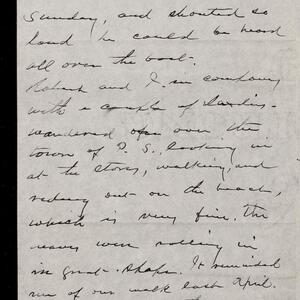 Sunday, and shouted so
loud he could be heard
all over the boat.
Robert and I in company
with a couple of ladies
wandered over the
town of P. S. looking in
at the stores, walking, and
riding out on the beach,
which is very fine. The
waves were rolling in
in great shape. It reminded
me of our walk last April.